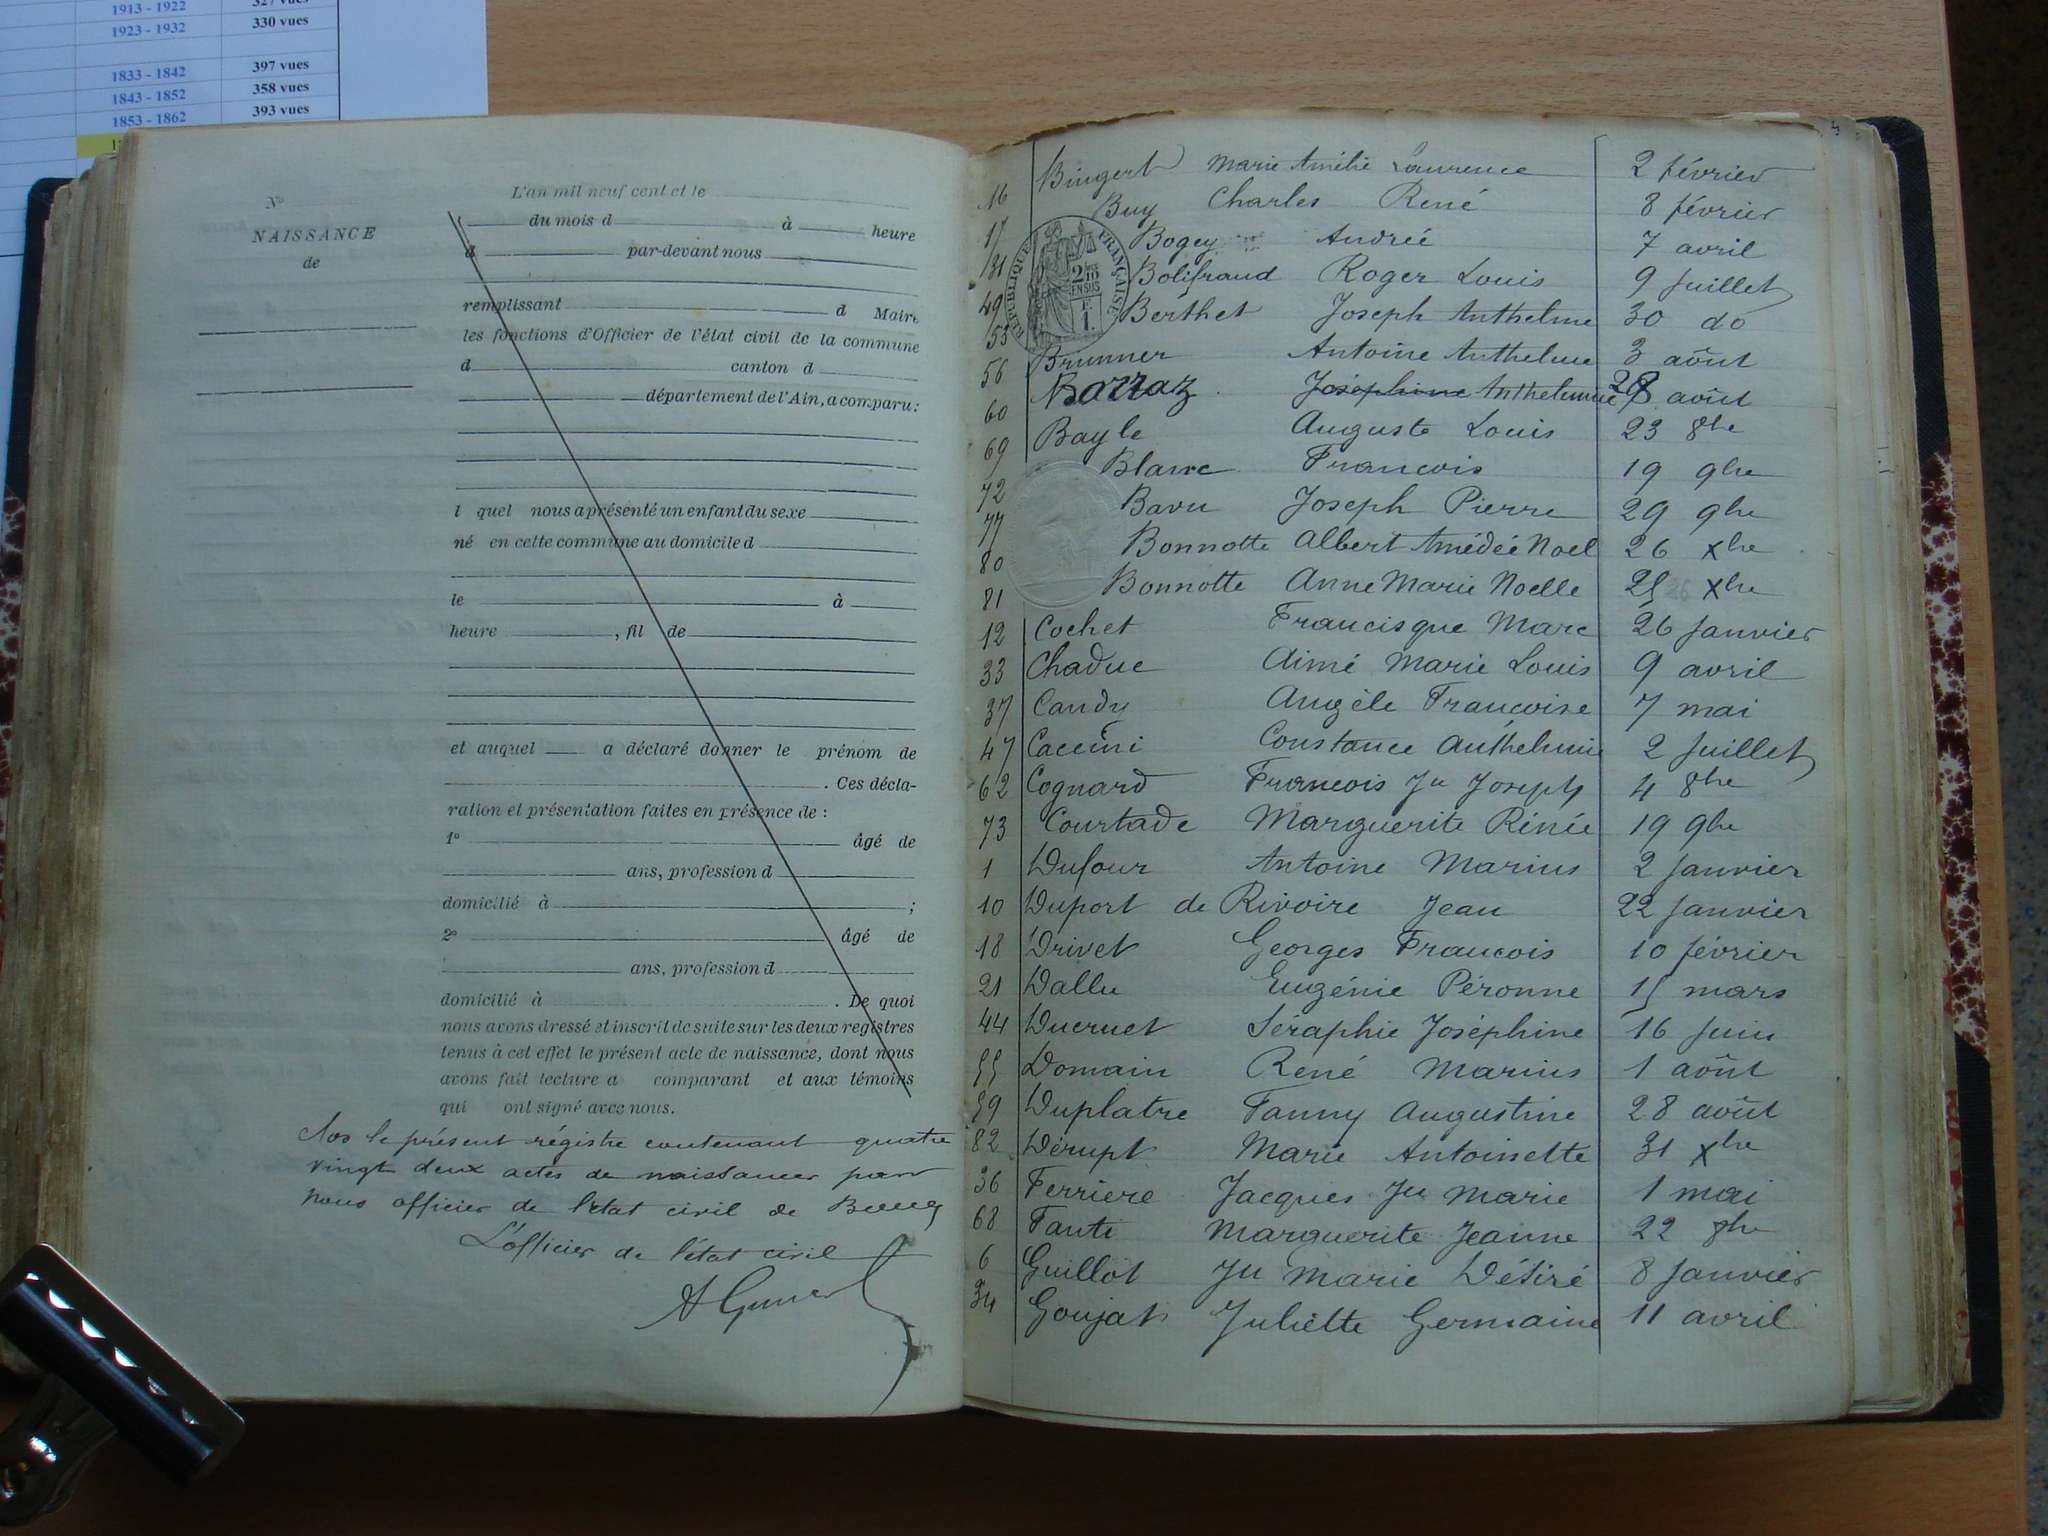 1913 - 1922 327 vues
1923 - 1932 330 vues
1833 - 1842 397 vues
1843 - 1852 358 vues
1853 - 1862 393 vues
No
NAISSANCE
de
L'an mil neuf cent et le
du mois d à heure
d par-devant nous
remplissant d Maire
les fonctions d'Officier de l'état civil de la commune
d canton d
département de l'Ain, a comparu:
l quel nous a présenté un enfant du sexe
né en cette commune au domicile d
le à
heure , fil de
et auquel a déclaré donner le prénom de
. Ces décla-
ration et présentation faites en présence de :
1° âgé de
ans, profession d
domicilié à ;
2° âgé de
ans, profession d
domicilié à . De quoi
nous avons dressé et inscrit de suite sur les deux registres
tenus à cet effet le présent acte de naissance, dont nous
avons fait lecture a comparant et aux témoins
qui ont signé avec nous.
Clos le présent régistre contenant quatre
vingt deux actes de naissances par
nous officier de l'état civil de
L'officier de l'état civil
4
16 Bingert Marie Amélie Laurence 2 février
17 Buy Charles René 8 février
31 Bogey Andrée 7 avril
49 Bolifraud Roger Louis 9 Juillet
53 Berthet Joseph Anthelme 30 do
56 Brunner Antoine Anthelme 3 août
60 Barraz Joséphine Anthelmie 28 août
69 Bayle Auguste Louis 23 8bre
72 Blanc Francois 19 9bre
77 Bavu Joseph Pierre 29 9bre
80 Bonnotte Albert Amédée Noel 26 Xbre
81 Bonnotte Anne Marie Noelle 25 26 Xbre
12 Cochet Francisque Marc 26 Janvier
33 Chaduc Aimé Marie Louis 9 avril
37 Candy Angèle Francoise 7 mai
47 Caccini Constance Anthelmie 2 Juillet
62 Cognard Francois Jn Joseph 4 8bre
73 Courtade Marguerite Rénée 19 9bre
1 Dufour Antoine Marius 2 Janvier
10 Duport de Rivoire Jean 22 Janvier
18 Drivet Georges Francois 10 février
21 Dallu Eugénie Péronne 15 mars
44 Ducruet Séraphie Joséphine 16 Juin
55 Domain René Marius 1 août
59 Duplatre Fanny Augustine 28 août
82 Dérupt Marie Antoinette 31 Xbre
36 Ferriere Jacques Jn Marie 1 mai
68 Fanti Marguerite Jeanne 22 8bre
6 Guillot Jn Marie Désiré 8 Janvier
34 Goujat Juliette Germaine 11 avril
RÉPUBLIQUE FRANÇAISE
2 10
EN SUS
1F.